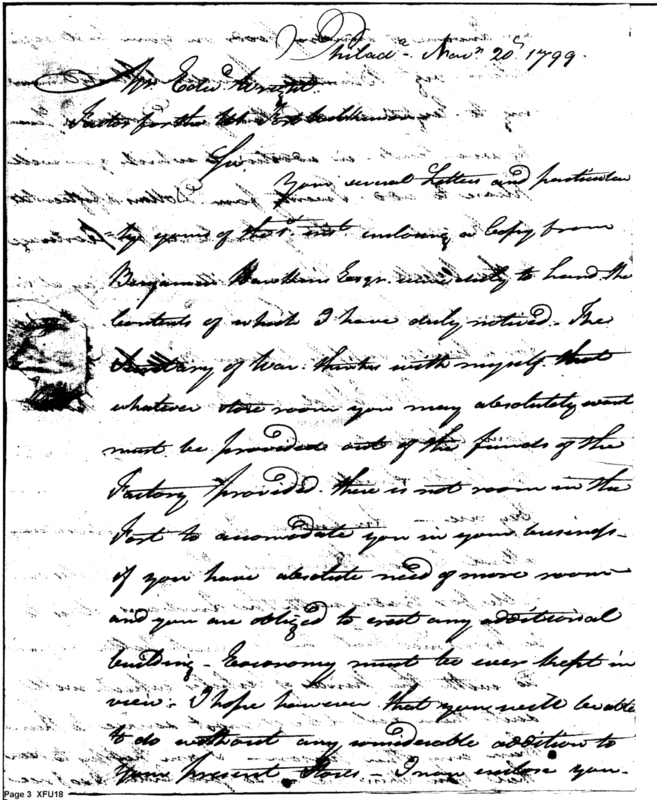 Philad.ª Novr. 20th 1799.
Mr. Edwd. Wright.
Factor for the US Fort Wilkinson
Sir,
Your several Letters and particular
=ly yours of the 1st. inst. enclosing a Copy from
Benjamin Hawkins Esqr. came duly to hand. the
Contents of which I have duly noticed. The
Secretary of War. thinks with myself. that
whatever store room you may absolutely want
must be provided out of the funds of the
Factory Provided. there is not room in the
Fort to accomodate you in your business.
if you have absolute need of more room
and you are obliged to erect any additional
building - Economy must be ever kept in
view. I hope however that you will be able
to do without any considerable addition to
your present Stores - I now enclose you -
Page 3 XFU18